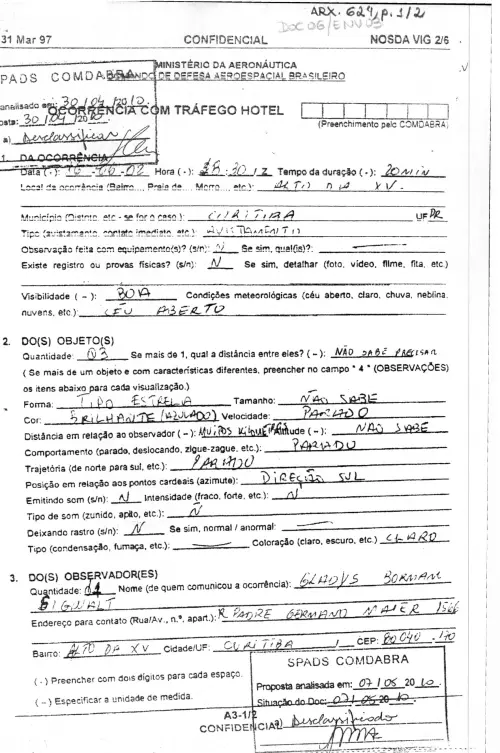 ARX. 624, p. 1/2
DOC 06/ENV 03
31 Mar 97 CONFIDENCIAL NOSDA VIG 2/6
MINISTÉRIO DA AERONÁUTICA
SPADS COMDABRA COMANDO DE DEFESA AEROESPACIAL BRASILEIRO
analisado em: 30/04/2010
OCORRÊNCIA COM TRÁFEGO HOTEL
Data: 30/04/2010
(Preenchimento pelo COMDABRA)
a) Desclassificar
1. DA OCORRÊNCIA
Data ( - ): 16-06-02 Hora ( - ): :30 / Z Tempo da duração ( - ): 20 MIN
Local da ocorrência (Bairro..., Praia de..., Morro..., etc.): ALTO DA XV.
Município (Distrito, etc - se for o caso): CURITIBA UF PR
Tipo (avistamento, contato imediato, etc.): AVISTAMENTO
Observação feita com equipamento(s)? (s/n): N Se sim, qual(is)?:
Existe registro ou provas físicas? (s/n): N Se sim, detalhar (foto, vídeo, filme, fita, etc.)
Visibilidade ( ~ ): BOA Condições meteorológicas (céu aberto, claro, chuva, neblina,
nuvens, etc.): CÉU ABERTO
2. DO(S) OBJETO(S)
Quantidade: 03 Se mais de 1, qual a distância entre eles? ( ~ ): NÃO SABE PRECISAR
( Se mais de um objeto e com características diferentes, preencher no campo " 4 " (OBSERVAÇÕES)
os itens abaixo para cada visualização.)
Forma: TIPO ESTRELA Tamanho: NÃO SABE
Cor: BRILHANTE (AZULADO) Velocidade: PARADO
Distância em relação ao observador ( ~ ): MUITOS Altitude ( ~ ): NÃO SABE
Comportamento (parado, deslocando, zigue-zague, etc.): PARADO
Trajetória (de norte para sul, etc.): PARADO
Posição em relação aos pontos cardeais (azimute): DIREÇÃO SUL
Emitindo som (s/n): N Intensidade (fraco, forte, etc.): N
Tipo de som (zunido, apito, etc.):
Deixando rastro (s/n): N Se sim, normal / anormal:
Tipo (condensação, fumaça, etc.): Coloração (claro, escuro, etc.) CLARO
3. DO(S) OBSERVADOR(ES)
Quantidade: 04 Nome (de quem comunicou a ocorrência): GLADYS BORMANN
SIGWALT
Endereço para contato (Rua/Av., n.º, apart.): R PADRE GERMANO MAIER
Bairro: ALTO DA XV Cidade/UF: CURITIBA / CEP: 80040-170
( - ) Preencher com dois dígitos para cada espaço.
( ~ ) Especificar a unidade de medida.
SPADS COMDABRA
Proposta analisada em: 07/05/2010
Situação do Doc: 07/05/2010
A3-1/2
CONFIDENCIAL
Desclassificado